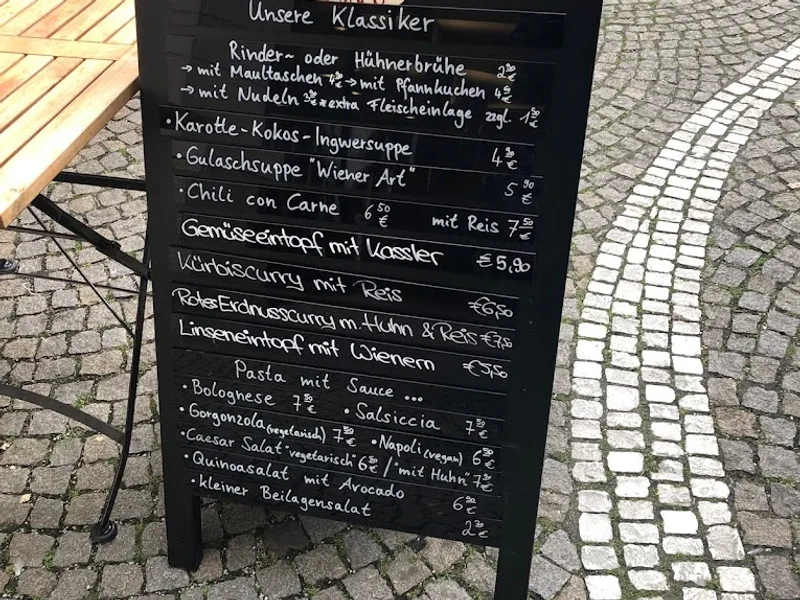 Unsere Klassiker
Rinder- oder Hühnerbrühe 2⁵⁰ €
→ mit Maultaschen → mit Pfannkuchen
→ mit Nudeln extra Fleischeinlage zzgl. 1⁵⁰ €
• Karotte-Kokos-Ingwersuppe
• Gulaschsuppe "Wiener Art" 5⁹⁰ €
• Chili con Carne 6⁵⁰ € mit Reis 7⁵⁰ €
Gemüseeintopf mit Kassler €5,90
Kürbiscurry mit Reis €6,50
Rotes Erdnusscurry m. Huhn & Reis €7,50
Linseneintopf mit Wienern €5,50
Pasta mit Sauce ...
• Bolognese 7⁵⁰ € • Salsiccia 7⁵⁰ €
• Gorgonzola (vegetarisch) 7⁵⁰ € • Napoli (vegan) 6⁵⁰ €
• Caesar Salat "vegetarisch" 6⁵⁰ € / "mit Huhn" 7⁵⁰ €
• Quinoasalat mit Avocado 6⁵⁰ €
• kleiner Beilagensalat 2⁵⁰ €